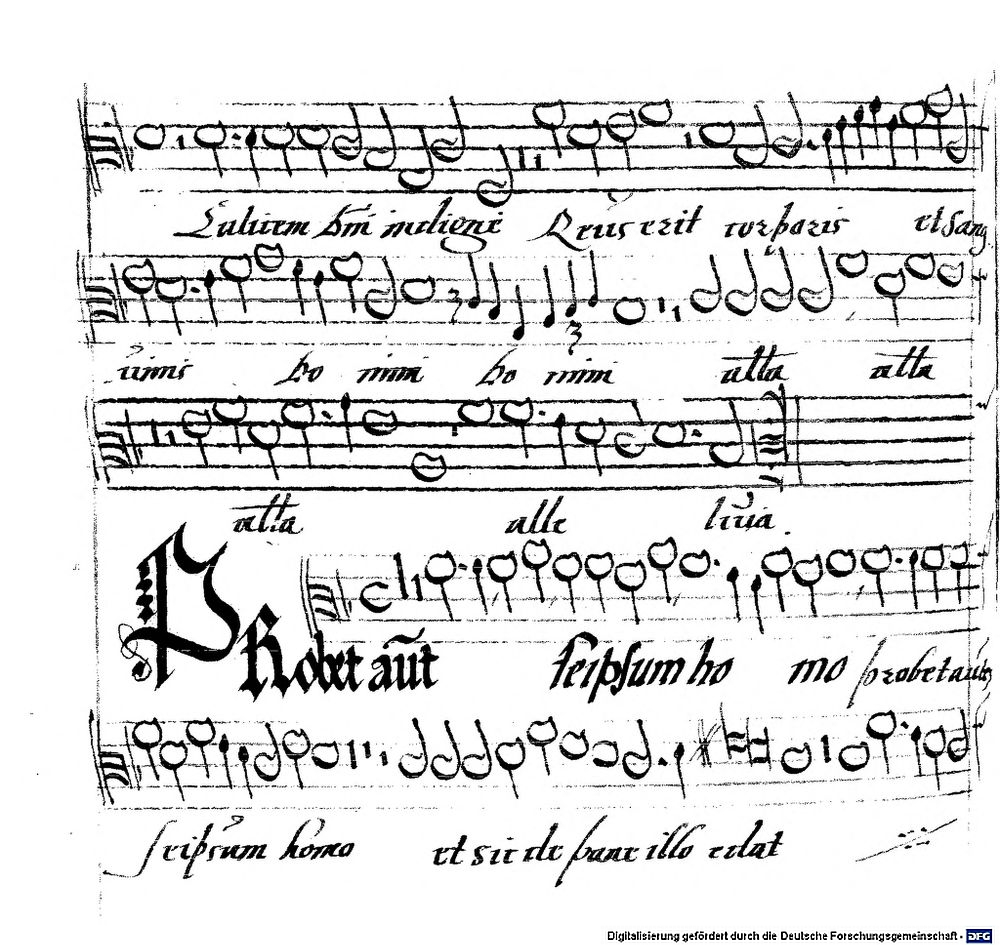 Calicem dñi indigne Reus erit corporis et sang
uinis ho mini ho mini alla alla
alla alle luia
PRobet aũt seipsum ho mo probet aut
seipsum homo et sic de pane illo edat
Digitalisierung gefördert durch die Deutsche Forschungsgemeinschaft - DFG